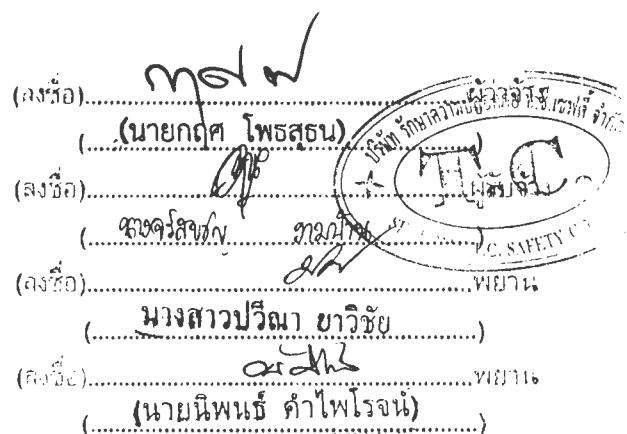 (ลงชื่อ)..........ผู้ว่าจ้าง
(..(นายกฤศ โพธสุธน)..)
(ลงชื่อ)..........ผู้รับจ้าง
(..........)
(ลงชื่อ)..........พยาน
(..นางสาวปวีณา ยาวิชัย..)
(ลงชื่อ)..........พยาน
(..(นายนิพนธ์ คำไพโรจน์)..)
บริษัท รักษาความปลอดภัย ที.ซี.เซฟตี้
T.C.
T.C. SAFETY